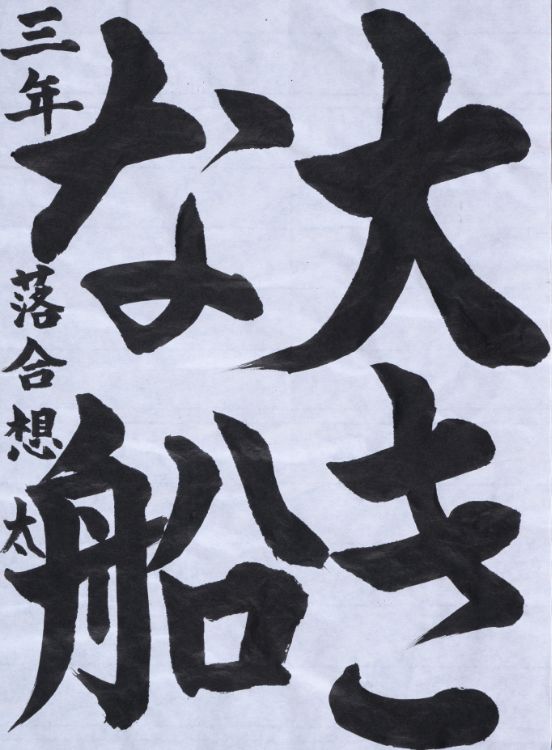 大き
な船
三年 落合想太